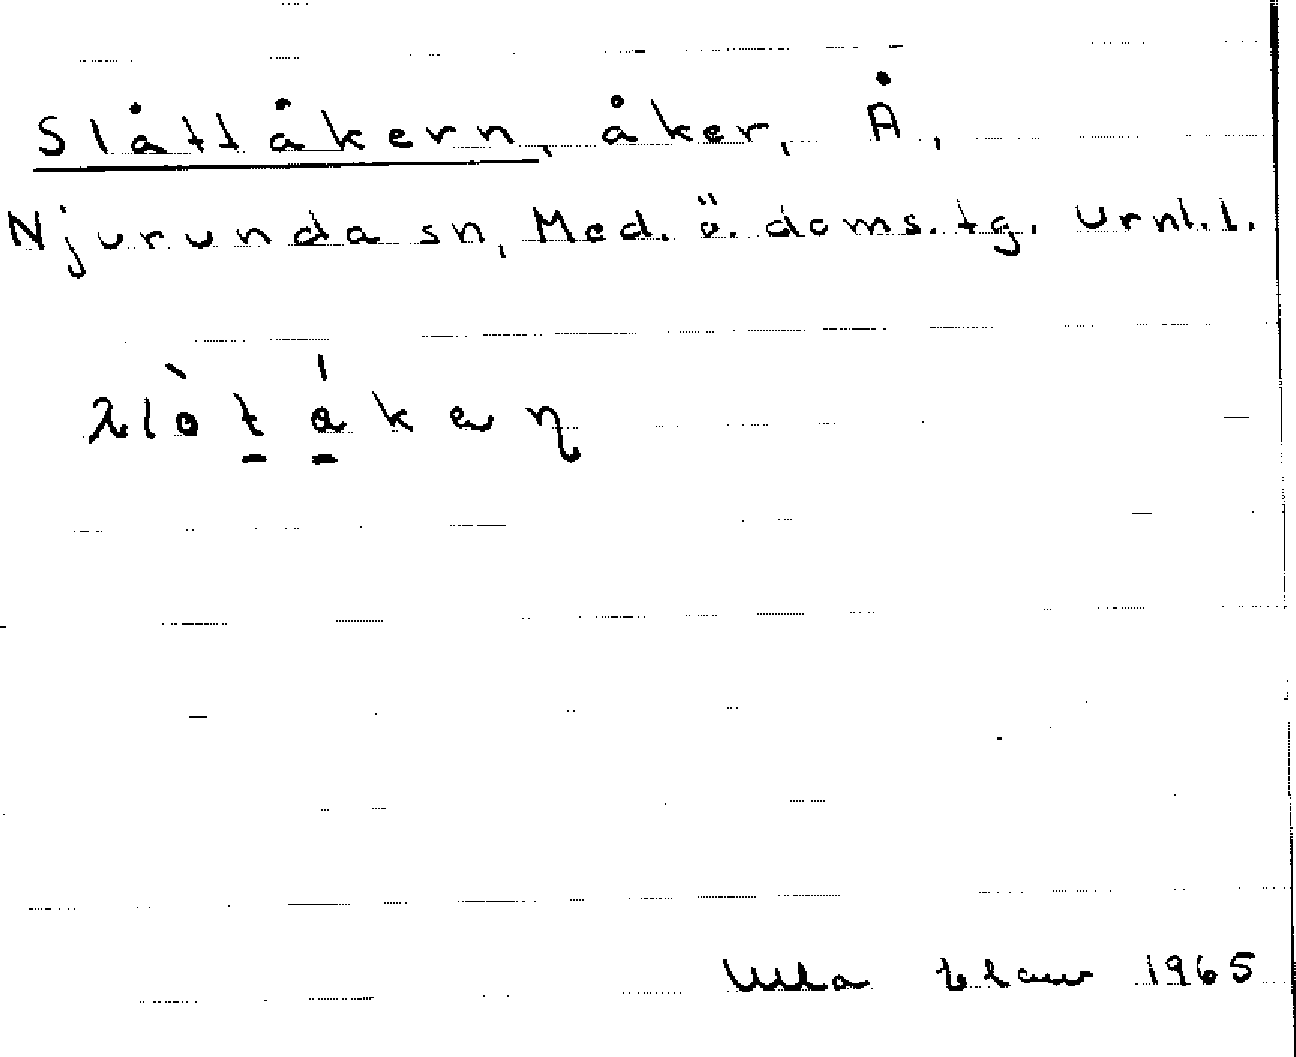 Slåttåkern, åker, Å,
Njurunda sn, Med. ö. doms. tg. Urnl. l.
Ulla 1965